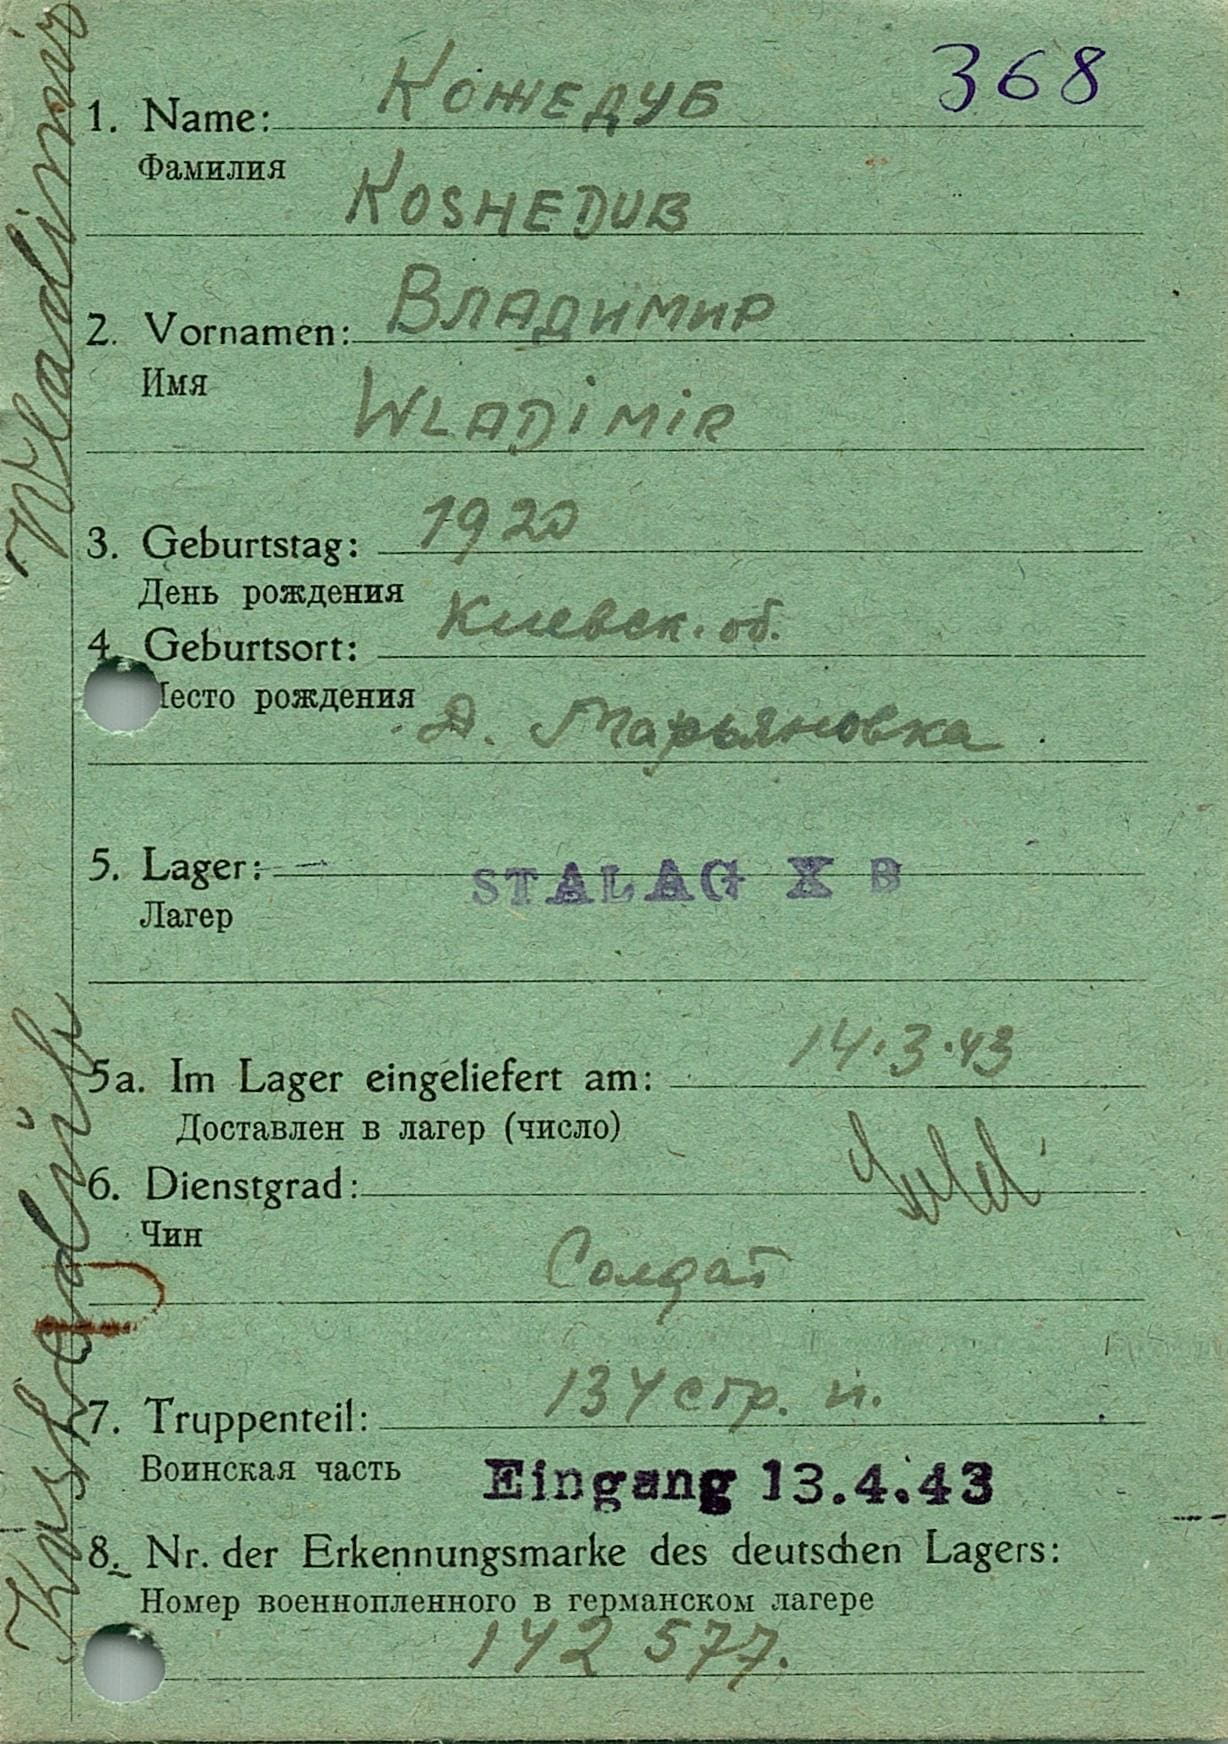 368
1. Name: Кожедуб
Фамилия
KOSHEDUB
2. Vornamen: Владимир
Имя
WLADIMIR
3. Geburtstag: 1920
День рождения
4. Geburtsort: Киевск. об.
Место рождения
Д. Марьяновка
5. Lager: STALAG X B
Лагер
5a. Im Lager eingeliefert am: 14.3.43
Доставлен в лагер (число)
6. Dienstgrad:
Чин
Солдат
7. Truppenteil: 134 стр. п.
Воинская часть
Eingang 13.4.43
8. Nr. der Erkennungsmarke des deutschen Lagers:
Номер военнопленного в германском лагере
142 577.
Wladimir